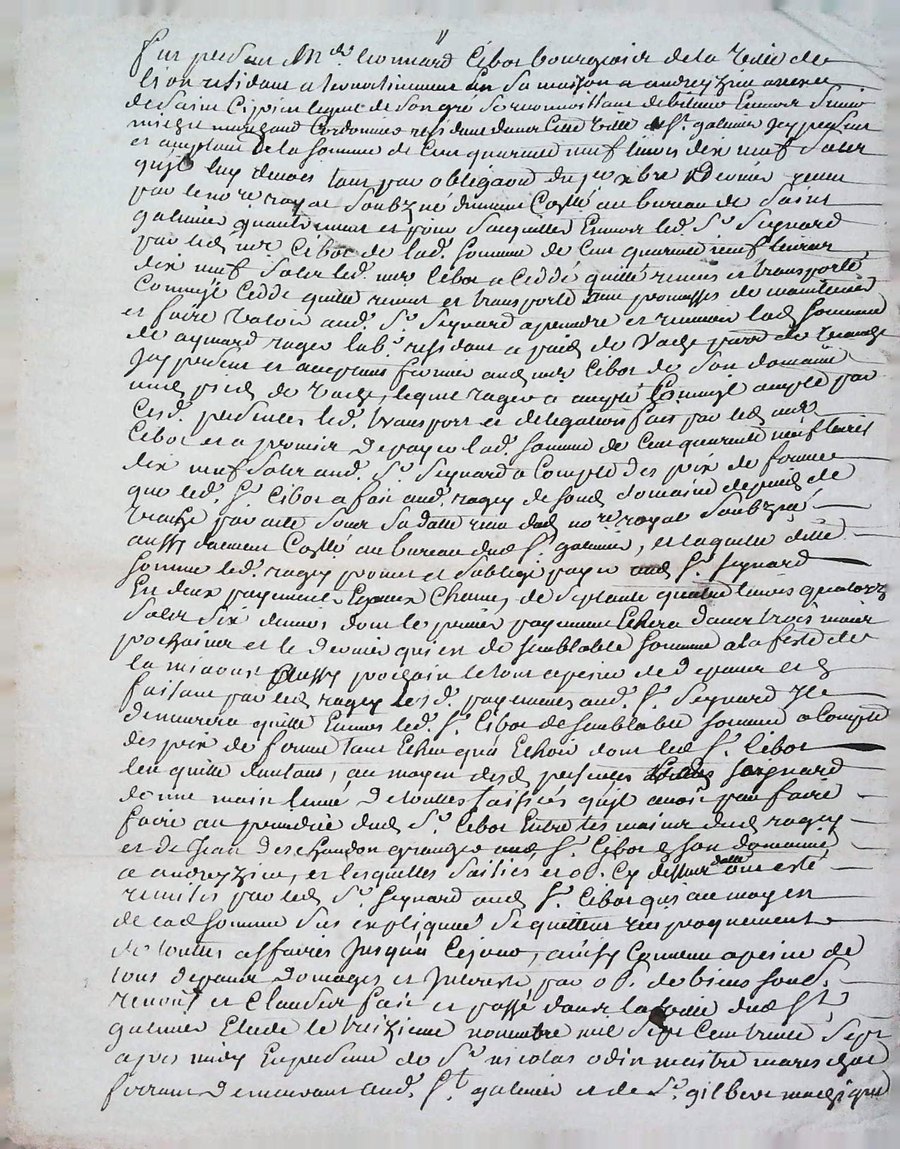 fut present Mr. leonnard Cibot bourgeois de la ville de
lion residant a temoutinement En sa maison a andrezieu annexe
de Saint Ciprien lequel de son gré se reconnoit debiteur Envers
marchand Cordonnier residant dans cette ville de St. galmier Icy present
et acceptant de la somme de Cent quarente neuf livres dix neuf sols
qu'il luy devoit tant par obligaõn du xbre dernier receu
par le nore royal soubzné duement Collé au bureau de Saint
galmier quautrement et pour s'acquitter Envers led. Sr. Seynard
par led. mr. Cibot de lad. somme de Cent quarente neuf livres
dix neuf sols led. mr. Cibot a Ceddé quitté remis et transporté
Comm'il Cedde quitte remet et transporte avec promesses de maintenir
et faire valoir aud. Sr. Seynard a prendre et recevoir lad. somme
de aymard ragey lab. residant a
Icy present et acceptant fermier aud. mr. Cibot de son domaine
lequel ragey a accepté Comm'il accepte par
Cesd. presentes led. transport et delegation fait par led. mr.
Cibot et a promis de payer lad. somme de Cent quarente neuf livres
dix neuf sols aud. Sr. Seynard a Compte des prix de ferme
que led. Sr. Cibot a fait aud. ragey de son domaine de
par acte sous sa datte receu dud. nore royal soubzné
aussy duement Collé au bureau dud. St. galmier, et laquelle ditte
somme led. ragey promet et s'oblige payer aud. Sr. Seynard
En deux payements Egaux Chacun de Septante quatre livres quatorze
sols six deniers dont le premier payement Echera dans trois mois
prochains et le dernier qui est de semblable somme a la feste de
la miaoust aussy prochain le tout a peine de depens et
faisant par led. ragey lesd. payements aud. Sr. Seynard Il
demeurera quitte Envers led. Sr. Cibot de semblable somme a Compte
des prix de ferme tant Echus qu'a Echoir dont led. Sr. Cibot
l'en quitte d'autant, au moyen desd. presentes led. Seignard
donne main levée de touttes saisies qu'il avoit pu faire
faire au prejudice dud. Sr. Cibot Entre les mains dud. ragey
et de Jean deschandon granger aud. Sr. Cibot de son domaine
a andrezieu, et lesquelles saisies et op. Cy dessus datte ont esté
remises par led. Sr. Seynard aud. Sr. Cibot qui au moyen
de lad. somme sus expliquée se quittent reciproquement
de touttes affaires Jusqu'a Cejour, ainsy Convenu a peine de
tous depens domages et Interests, par op. de biens soub.
renont. et Clauses fait et passé dans la ville dud. St.
galmier Etude le treizieme novembre mil Sept Cent trente Sept
apres midy En presence de Sr. nicolas odin maitre mareschal
ferrant demeurant aud. St. galmier et de Sr. gilbert